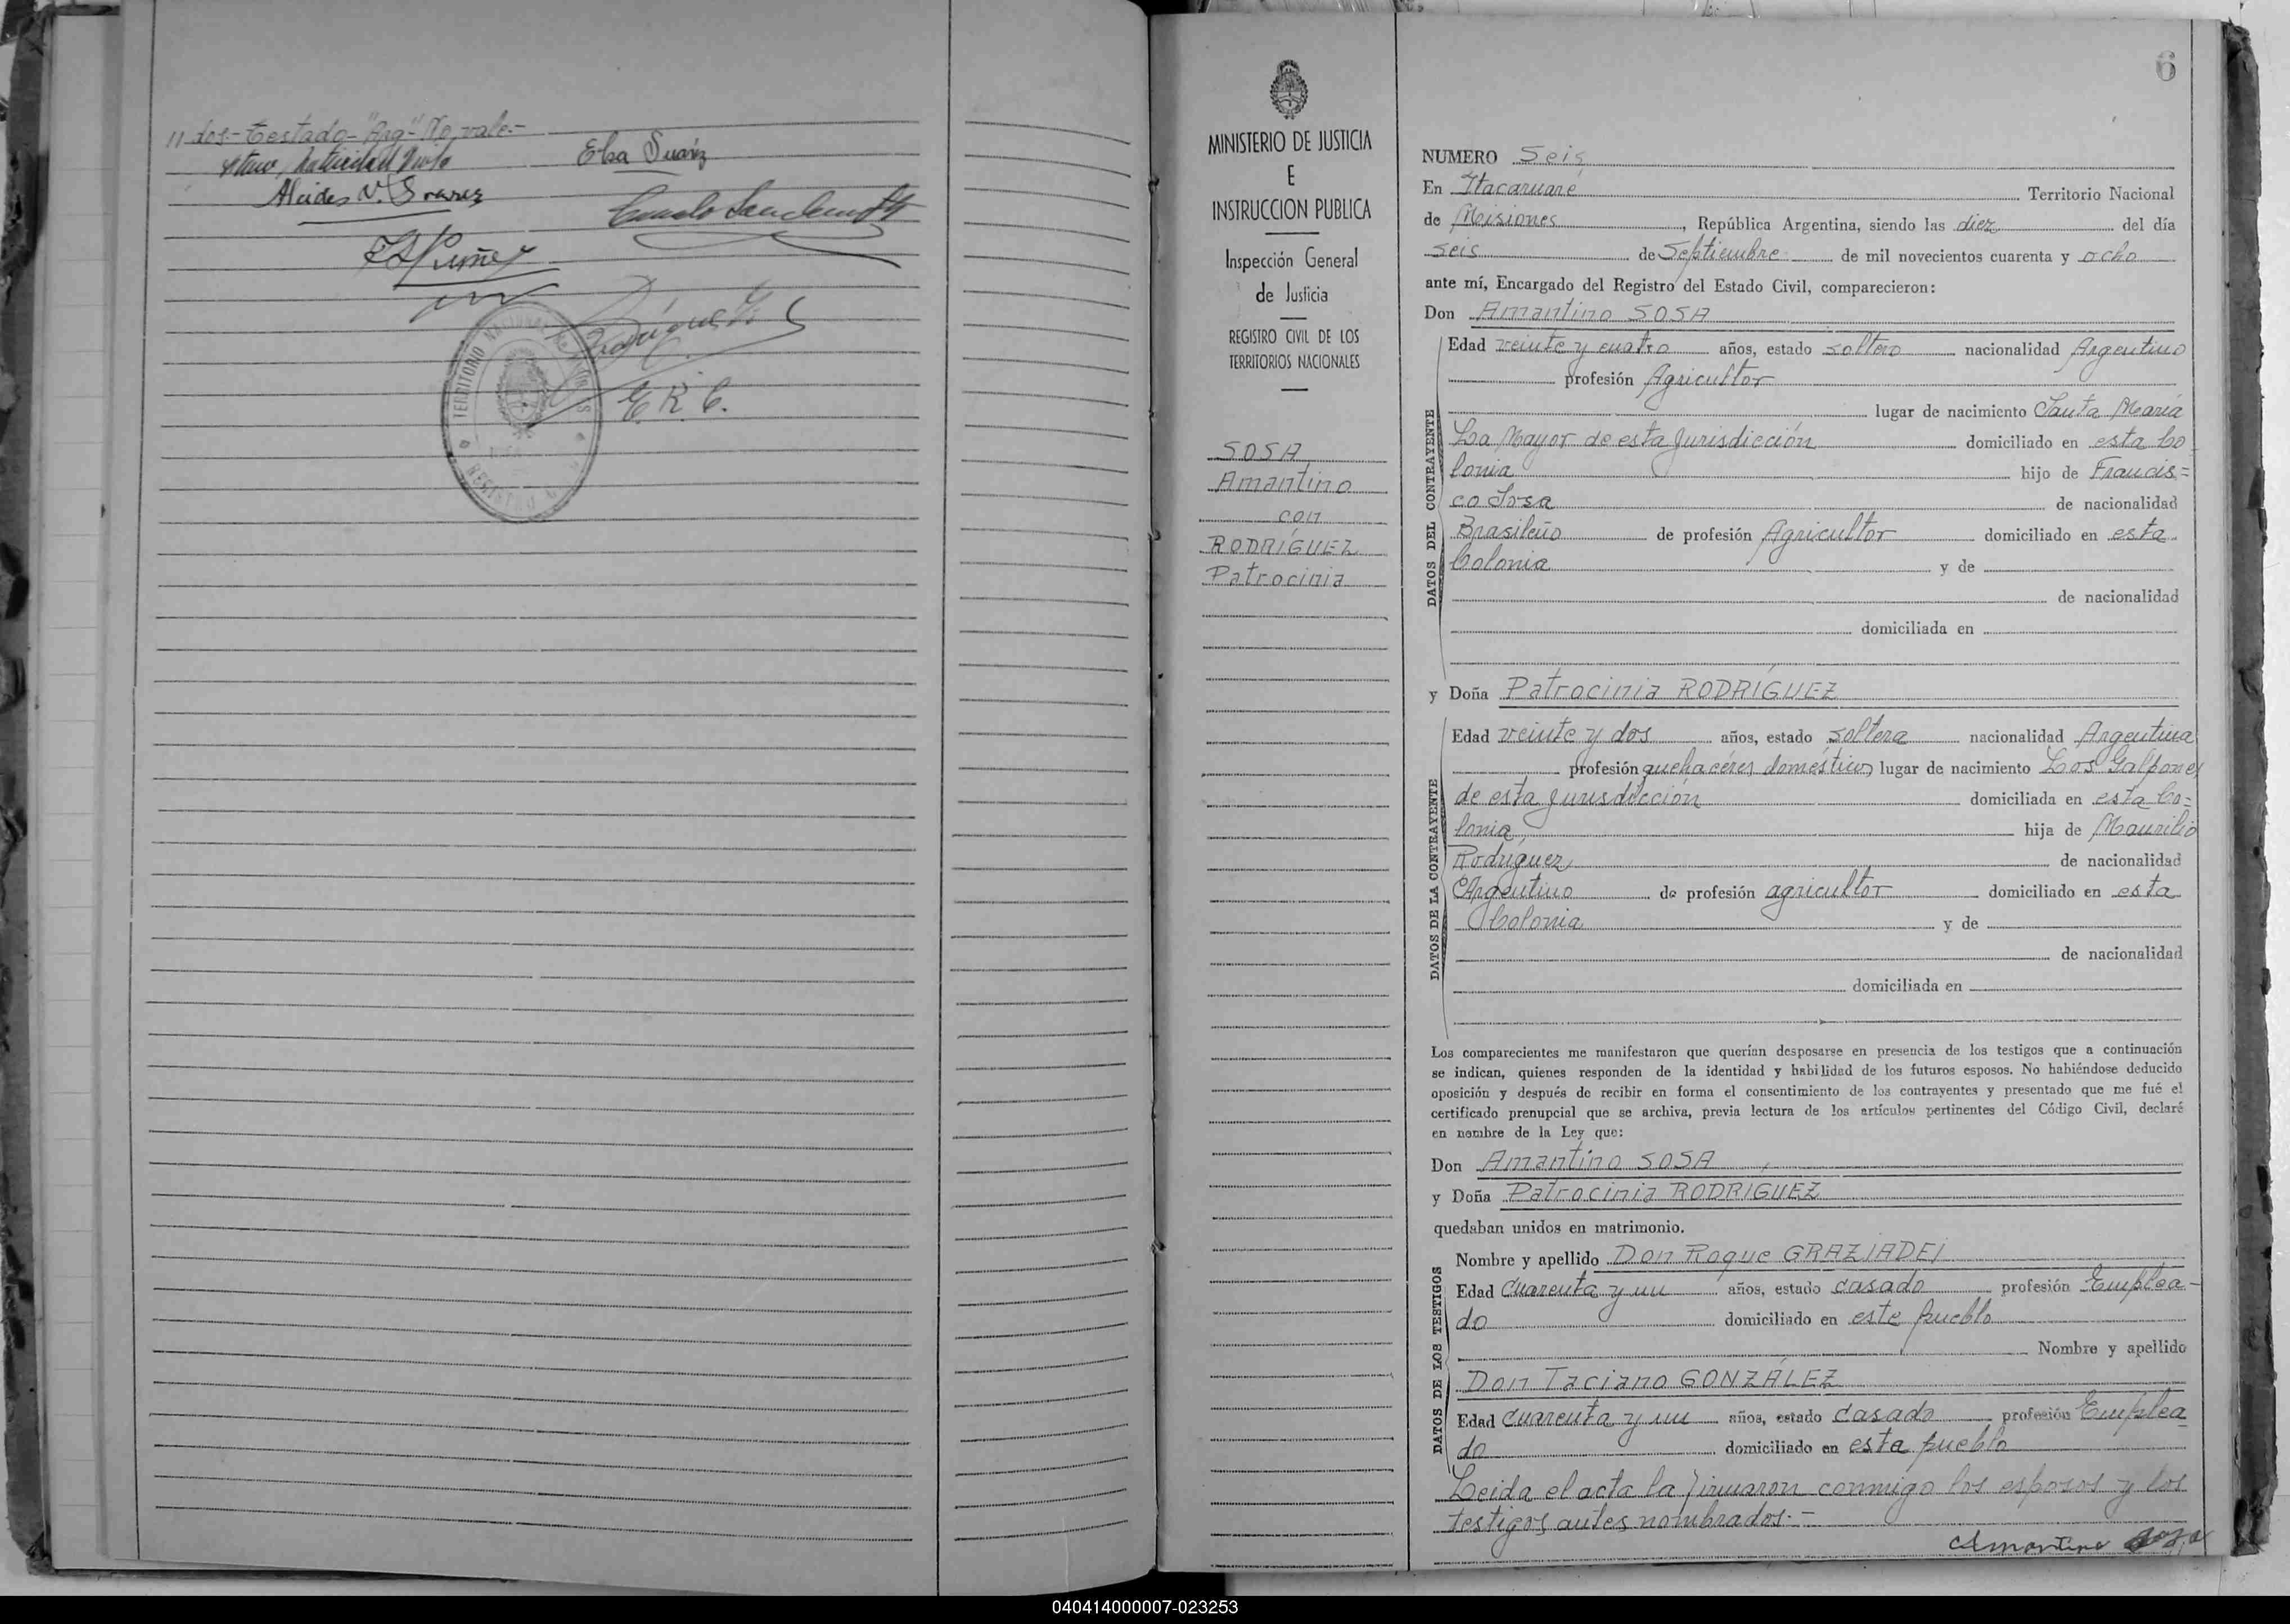 11 dos.- Testado - "Arg" No vale.-
Elsa Suárz
Alcides V. Soarez
E. R. C.
TERRITORIO NACIONAL
6
MINISTERIO DE JUSTICIA
E
INSTRUCCION PUBLICA
Inspección General
de Justicia
REGISTRO CIVIL DE LOS
TERRITORIOS NACIONALES
SOSA
Amantino
con
RODRÍGUEZ
Patrocinia
NUMERO Seis
En Itacaruaré Territorio Nacional
de Misiones, República Argentina, siendo las diez del día
seis de Septiembre de mil novecientos cuarenta y ocho
ante mí, Encargado del Registro del Estado Civil, comparecieron:
Don Amantino SOSA
DATOS DEL CONTRAYENTE
Edad veinte y cuatro años, estado soltero nacionalidad Argentino
profesión Agricultor
lugar de nacimiento Santa María
La Mayor de esta Jurisdicción domiciliado en esta Co
lonia hijo de Francis=
co Sosa de nacionalidad
Brasileño de profesión Agricultor domiciliado en esta
Colonia y de
de nacionalidad
domiciliada en
y Doña Patrocinia RODRÍGUEZ
DATOS DE LA CONTRAYENTE
Edad veinte y dos años, estado soltera nacionalidad Argentina
profesión quehacéres doméstico, lugar de nacimiento Los Galpones
de esta Jurisdicción domiciliada en esta Co=
lonia, hija de Maurilio
Rodríguez, de nacionalidad
Argentino de profesión agricultor domiciliado en esta
Colonia y de
de nacionalidad
domiciliada en
Los comparecientes me manifestaron que querían desposarse en presencia de los testigos que a continuación
se indican, quienes responden de la identidad y habilidad de los futuros esposos. No habiéndose deducido
oposición y después de recibir en forma el consentimiento de los contrayentes y presentado que me fué el
certificado prenupcial que se archiva, previa lectura de los artículos pertinentes del Código Civil, declaré
en nombre de la Ley que:
Don Amantino SOSA
y Doña Patrocinia RODRIGUEZ
quedaban unidos en matrimonio.
DATOS DE LOS TESTIGOS
Nombre y apellido Don Roque GRAZIADEI
Edad Cuarenta y un años, estado casado profesión Emplea-
do domiciliado en este pueblo
Nombre y apellido
Don Taciano GONZÁLEZ
Edad cuarenta y un años, estado casado profesión Emplea
do domiciliado en esta pueblo
Leida el acta la firmaron conmigo los esposos y los
testigos antes nombrados.-
Amantino Sosa
040414000007-023253